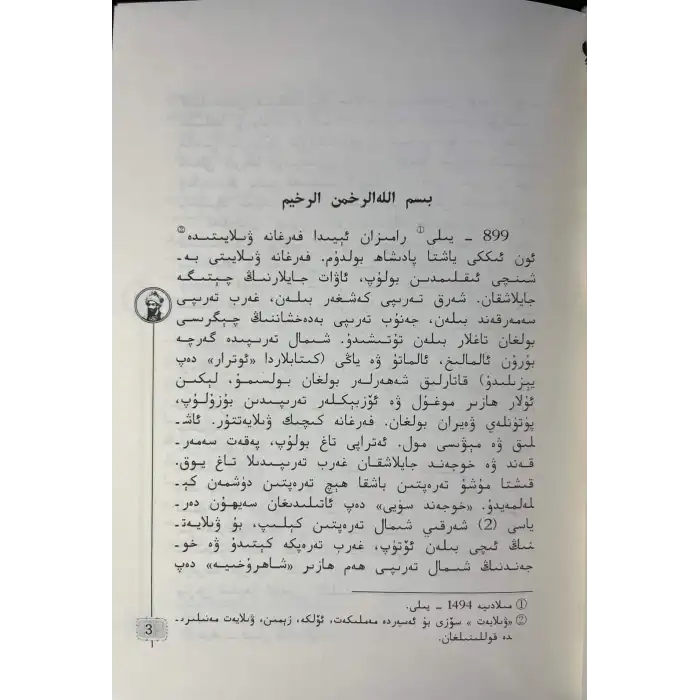 بىسم اللەالرخمن الرخيم
899 ـ يىلى① رامىزان ئېيىدا فەرغانە ۋىلايىتىدە②
ئون ئىككى ياشتا پادىشاھ بولدۇم. فەرغانە ۋىلايىتى بەـ
شىنچى ئىقلىمدىن بولۇپ، ئاۋات جايلارنىڭ چېتىگە
جايلاشقان. شەرق تەرىپى كەشغەر بىلەن، غەرب تەرىپى
سەمەرقەند بىلەن، جەنۇب تەرىپى بەدەخشاننىڭ چېگرىسى
بولغان تاغلار بىلەن تۇتىشىدۇ. شىمال تەرىپىدە گەرچە
بۇرۇن ئالمالىغ، ئالماتۇ ۋە ياڭى (كىتابلاردا «ئوتىرار» دەپ
يېزىلىدۇ) قاتارلىق شەھەرلەر بولغان بولسىمۇ، لېكىن
ئۇلار ھازىر موغۇل ۋە ئۆزبېكلەر تەرىپىدىن بۇزۇلۇپ،
پۈتۈنلەي ۋەيران بولغان. فەرغانە كىچىك ۋىلايەتتۇر. ئاشـ
لىق ۋە مېۋىسى مول. ئەتراپى تاغ بولۇپ، پەقەت سەمەرـ
قەند ۋە خوجەند جايلاشقان غەرب تەرىپىدىلا تاغ يوق.
قىشتا مۇشۇ تەرەپتىن باشقا ھېچ تەرەپتىن دۈشمەن كېـ
لەلمەيدۇ. «خوجەند سۈيى» دەپ ئاتىلىدىغان سەيھۇن دەرـ
ياسى (2) شەرقىي شىمال تەرەپتىن كېلىپ، بۇ ۋىلايەتـ
نىڭ ئىچى بىلەن ئۆتۈپ، غەرب تەرەپكە كېتىدۇ ۋە خوـ
جەندنىڭ شىمال تەرىپى ھەم ھازىر «شاھرۇخىيە» دەپ
① مىلادىيە 1494 ـ يىلى.
② «ۋىلايەت » سۆزى بۇ ئەسەردە مەملىكەت، ئۆلكە، زېمىن، ۋىلايەت مەنىلىرىـ
دە قوللىنىلغان.
3